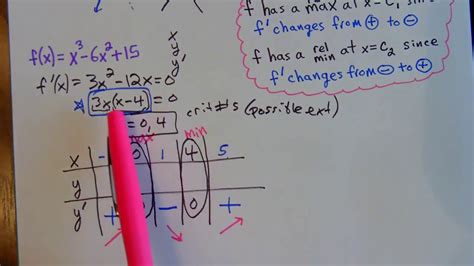 f has a max at x=c, since
f' changes from + to -
f has a rel min at x=c₂ since
f' changes from - to +
f(x) = x³-6x²+15
y
y'
y''
f'(x) = 3x²-12x=0
3x(x-4) = 0
= 0, 4
crit #'s (possible ext)
max
min
x - 0 1 4 5
y
y' + 0 - 0 +